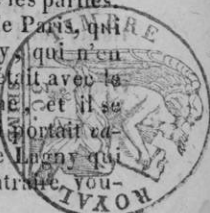 les parties.
e Paris, qui
y, qui n'en
était avec le
et il se
portait ca-
e Lagny qui
ntraire, vou-
ROYAL